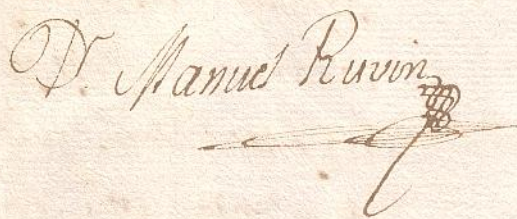 Dr Manuel Ruvin